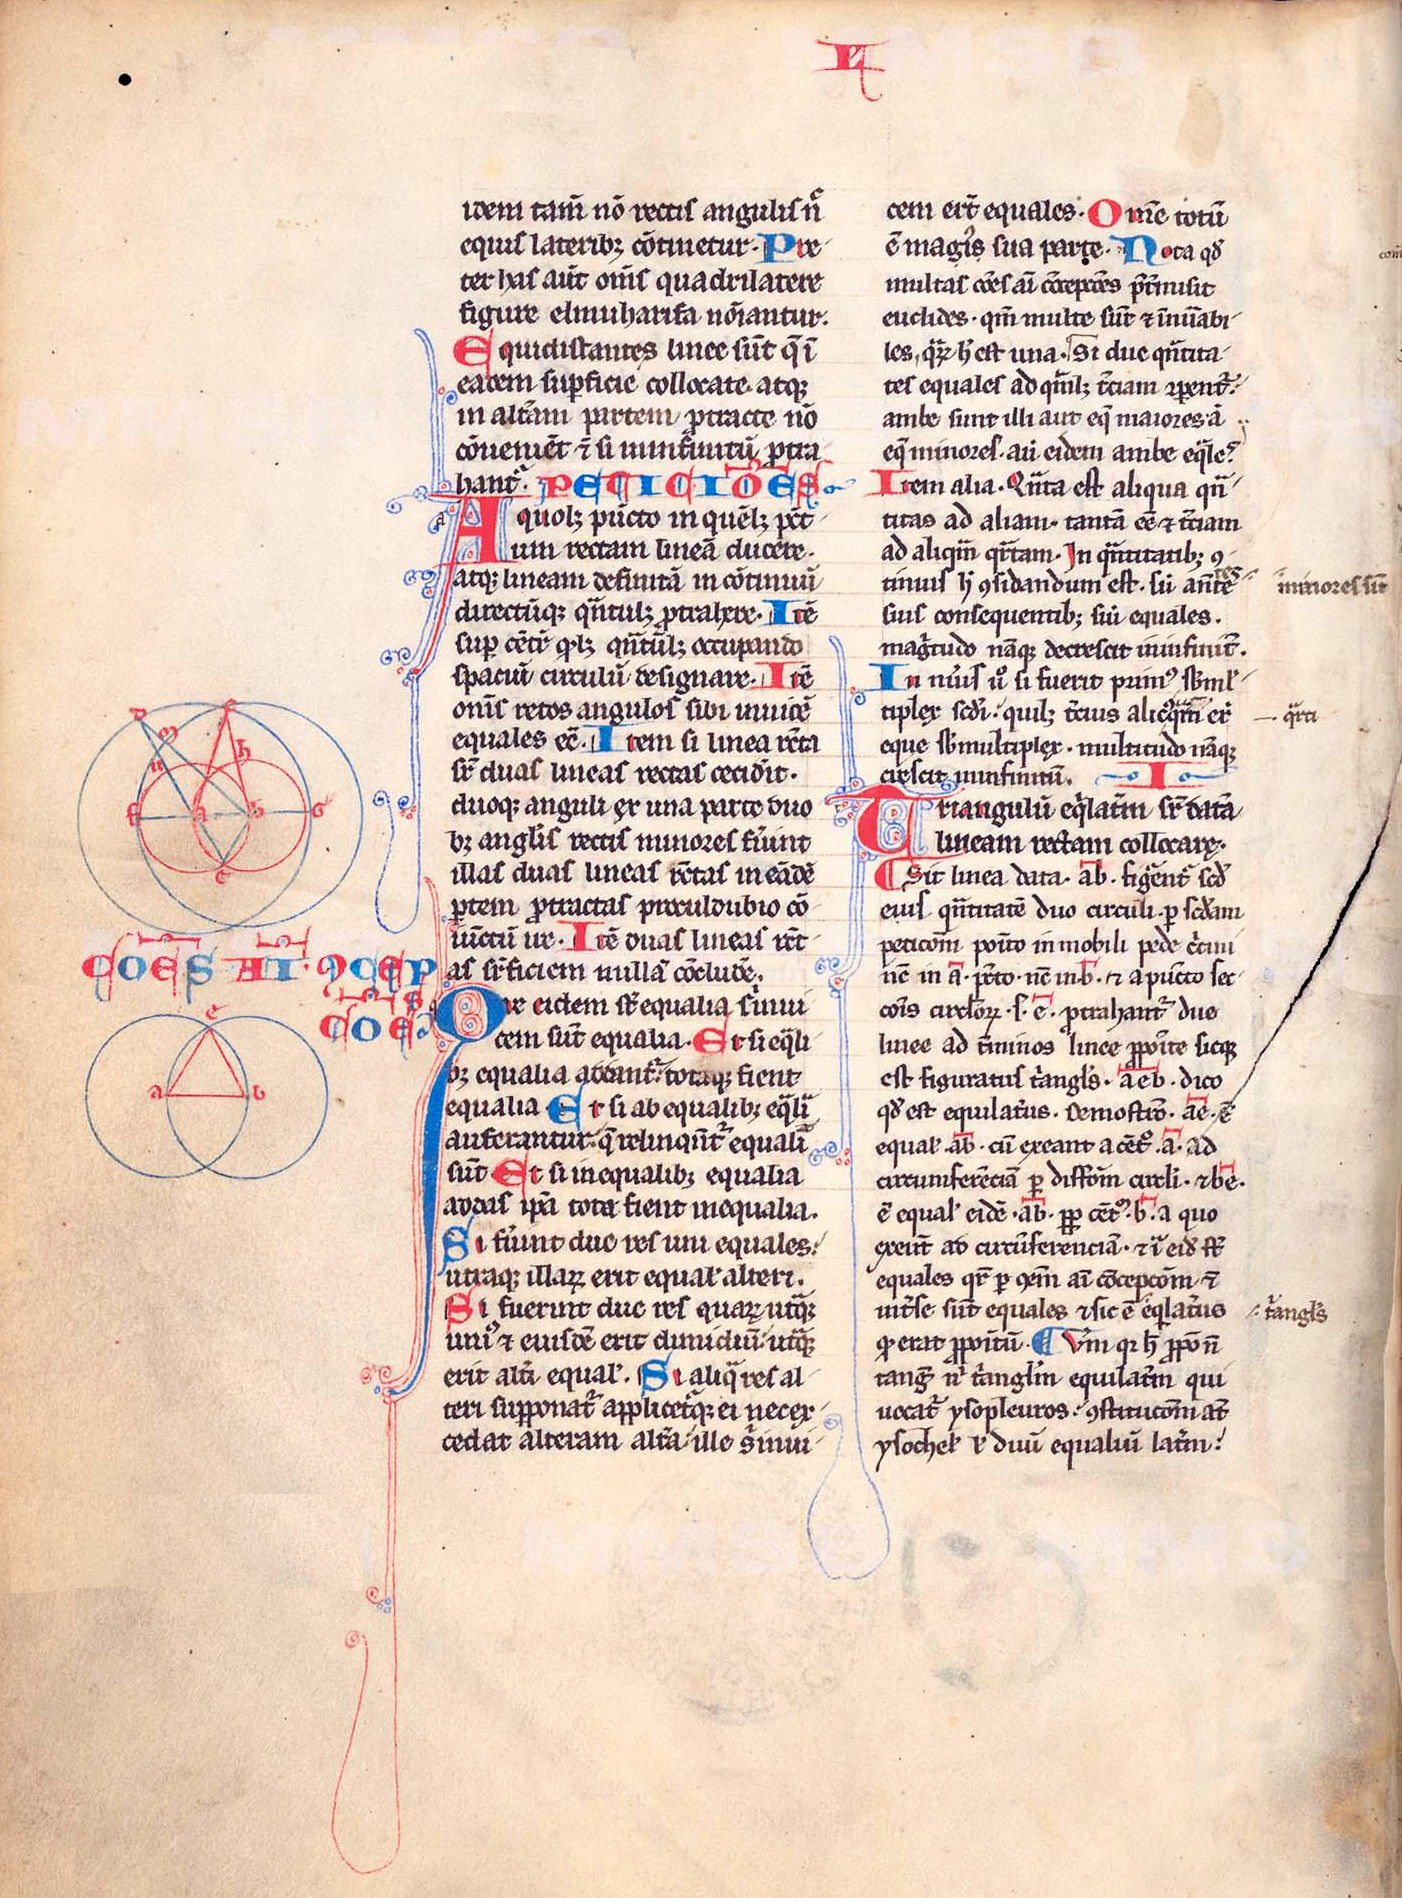 E
idem tam̄ nō rectis angulis n̄c
equis lateribꝫ cōtinetur. Pre
ter has aūt om̄s quadrilatere
figure elmuharifa nōīantur.
Equidistantes linee sūt q̄ ī
eadem sup̄ficie collocate. atqꝫ
in alt̄am partem ꝓtracte nō
cōveniēt ⁊̄ si ī infinitū ꝓtra
hant᷑. PETICIŌES.
A quolꝫ pūcto in quēlꝫ pūct
um rectam lineā ducere.
atqꝫ lineam definitā in cōtinuū
directūqꝫ qn̄tūlꝫ ꝓtrahere. Itē
sup̄ cētꝝ qꝫlꝫ qn̄tūlꝫ occupando
spaciū circulū designare. Itē
om̄s retos angulos sibi invicē
equales eē. Item si linea rēta
sr̄ duas lineas rectas cecidīt.
duoqꝫ anguli ex una parte duo
bꝫ angl̄is rectis minores fūint
illas duas lineas rēctas in eādē
ꝑtem ꝓtractas proculdubio cō
iūctū ire. Itē duas lineas rēct
as sr̄ficiem nullā cōcludē.
COES AI ꝯCEP
COES
Que eidem st̄ equalia s̄ invi
cem sūt equalia. Et si eq̄li
bꝫ equalia addant᷑: totaqꝫ fient
equalia Et si ab equalibꝫ eq̄lia
auferantur: q̄ relinqūt᷑ equalia
sūt Et si inequalibꝫ equalia
addas ip̄a tota fient inequalia.
Si fūint due res uni equales:
utraqꝫ illaꝝ erit equal' alteri.
Si fuerint due res quaꝝ utq̄ꝫ
uni⁹ ⁊ eiusdē erit dimidiū: utq̄ꝫ
erit alt̄i equal'. Si aliq̄ res al
teri supponat᷑ applicet᷑qꝫ ei nec ex
cedat alteram alt̄a: ille s̄ invi
cem er̄t equales. Om̄e totū
ē magis sua parte. Nota qd̄
multas cōes aī cōcepcōes p̄t̄misit
euclides. qm̄ multe sūt ⁊ īnūabi
les, quaꝝ h̄ est una. Si due qn̄tita
tes equales ad qn̄ilꝫ t̄ciam ꝯpent᷑:
ambe sunt illi aut eq̄ maiores aū
eq̄ minores. aū eidem ambe eq̄le?
Item alia. Qn̄ta est aliqua qn̄
titas ad aliam. tantā eē ⁊ t̄ciam
ad aliqm̄ qr̄tam. In qn̄titatibꝫ ꝯ
tinuis h̄ ꝯsidandum est. sū ant̄tes
suis consequentibꝫ sūt equales.
magn̄tudo nāqꝫ decrescit in infinit̄.
In nūis ū si fuerit prim⁹ sb̄ml'
tiplex scdī. quilꝫ t̄cius alic̄ q̄rti er̄t
eque sb̄multiplex. multitudo nāqꝫ
crescit in infinitū. I
Triangulū eq̄lat̄m sr̄ datā
lineam rectam collocare.
Sit linea data. ab. fiḡent᷑ scd̄
eius qn̄titatē duo circuli. ꝑ scd̄am
peticōm poīto inmobili pede c̄cini
nē in a. pūcto. nē in b. ⁊ a pūcto sec
cōis circl̄oꝝ .s. e. ꝓtrahant᷑ due
linee ad t̄minos linee ꝓpoīte sicqꝫ
est figuratus t̄angl̄s. aeb. dico
qd̄ est equilat̄us. demostrō. ae. ē
equal'. ab. cū exeant a cēt⁹. a. ad
circumferēciā ꝑ diffōm circli. ⁊ be.
ē equal' eidē .ab. ꝓꝑ cēt⁹. b. a quo
exeūt ad circūferenciā. ⁊ ī eid̄ sūt
equales qr̄ ꝑ ꝯem̄ aī cōcepcōm ⁊
int̄se sūt equales ⁊ sic ē eq̄lat̄us
qd̄ erat ꝓpoītū.
uocat᷑ ysopleuros: ꝯstitucōm at̄
ysochel' ⁊ duū equaliū lat̄m:
minores sūt
q̄rti
t̄angl̄s
a
d
c
m
h
n
f
a
b
g
e
e
a
b